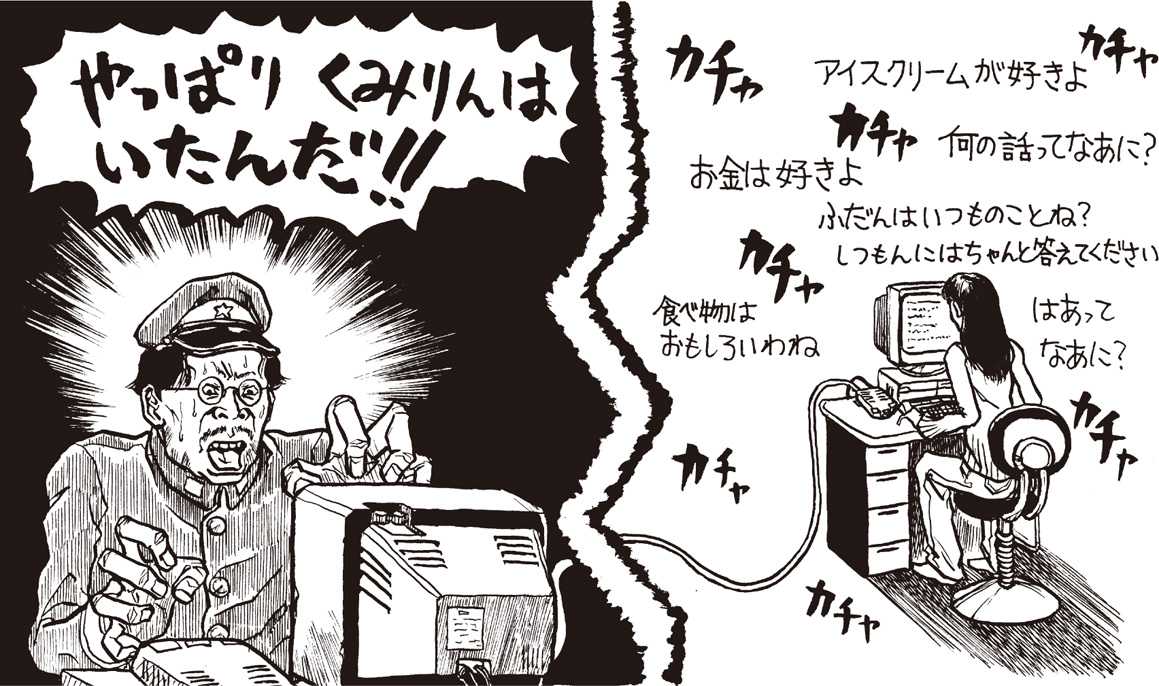 やっぱり くみりんは
いたんだ!!
カチャ
アイスクリームが好きよ
カチャ
カチャ
何の話ってなあに?
お金は好きよ
ふだんはいつものことね?
しつもんにはちゃんと答えてください
カチャ
食べ物は
おもしろいわね
はあって
なあに?
カチャ
カチャ
カチャ